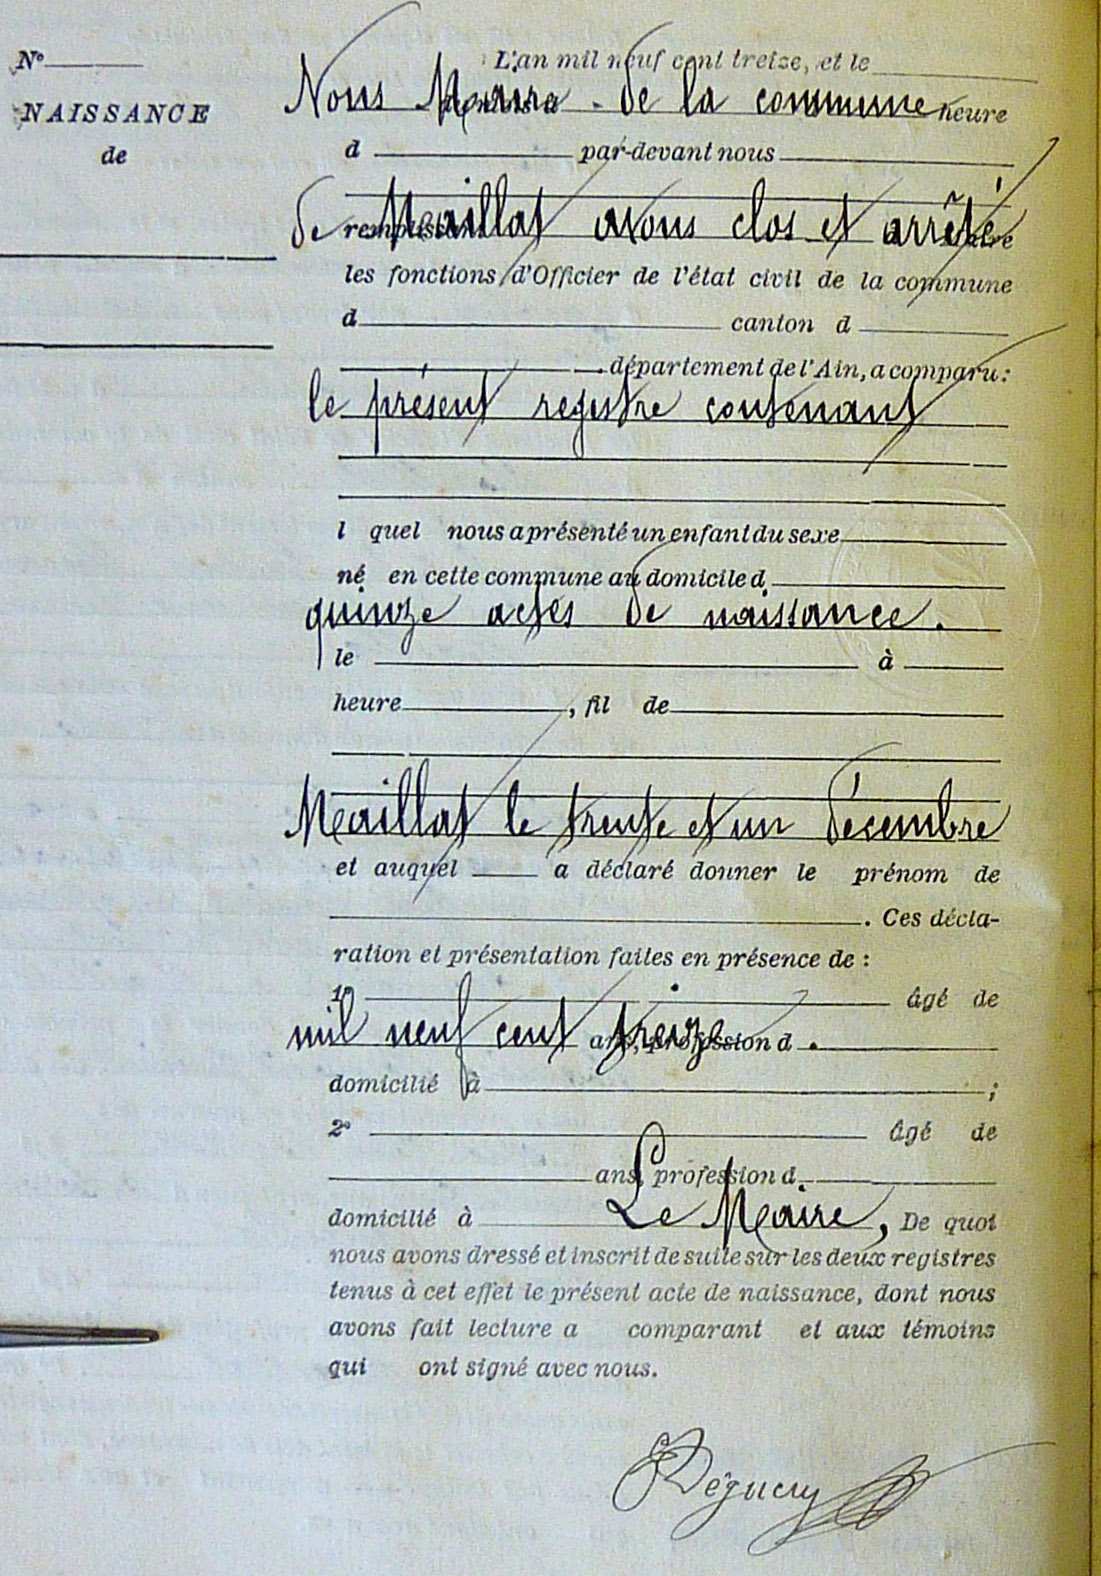 N°
NAISSANCE
de
L'an mil neuf cent treize, et le
Nous Maire de la commune heure
d par-devant nous
de Maillat avons clos et arrêté
les fonctions d'Officier de l'état civil de la commune
d canton d
département de l'Ain, a comparu:
le présent registre contenant
l quel nous a présenté un enfant du sexe
né en cette commune au domicile d
quinze actes de naissance.
le à
heure , fil de
Maillat le trente et un décembre
et auquel a déclaré donner le prénom de
. Ces décla-
ration et présentation faites en présence de :
1° âgé de
mil neuf cent treize ans, profession d .
domicilié à ;
2° âgé de
ans, profession d
domicilié à Le Maire, De quoi
nous avons dressé et inscrit de suite sur les deux registres
tenus à cet effet le présent acte de naissance, dont nous
avons fait lecture a comparant et aux témoins
qui ont signé avec nous.